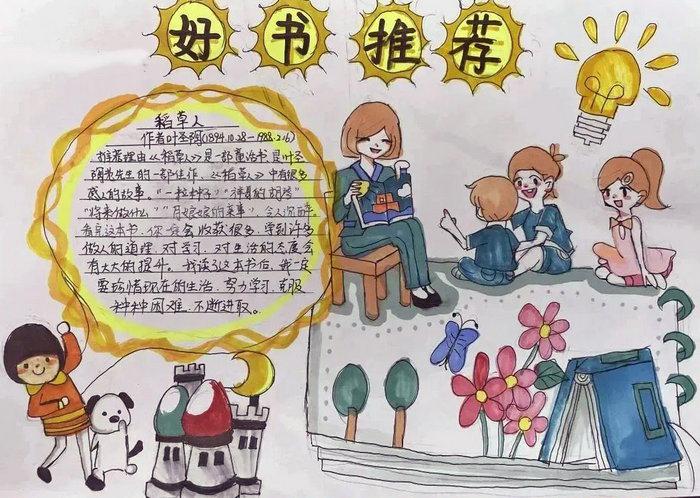 好书推荐
稻草人
作者叶圣陶(1894.10.28-1988.2.16)
推荐理由《稻草人》是一部童话书是叶圣
陶先生的一部佳作,《稻草人》中有很多
感人的故事。"一粒种子""祥哥的胡琴"
"将来做什么""月姑娘的亲事"令人沉醉。
看完这本书,你一定会收获很多,学到许多
做人的道理,对学习,对生活的态度会
有大大的提升。我读了这本书后,我一定
要珍惜现在的生活,努力学习,克服
种种困难,不断进取。